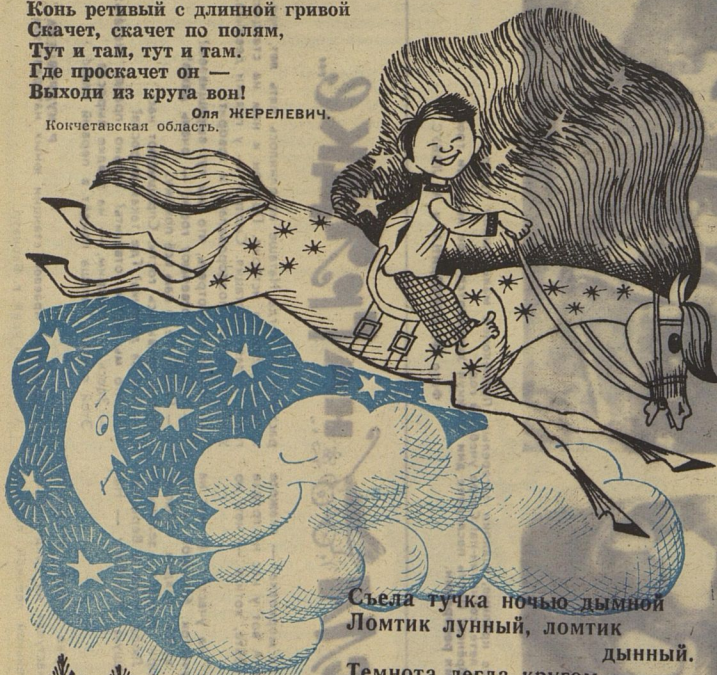 Конь ретивый с длинной гривой
Скачет, скачет по полям,
Тут и там, тут и там.
Где проскачет он —
Выходи из круга вон!
Оля ЖЕРЕЛЕВИЧ.
Кокчетавская область.
Съела тучка ночью дымной
Ломтик лунный, ломтик
дынный.
Темнота легла кругом